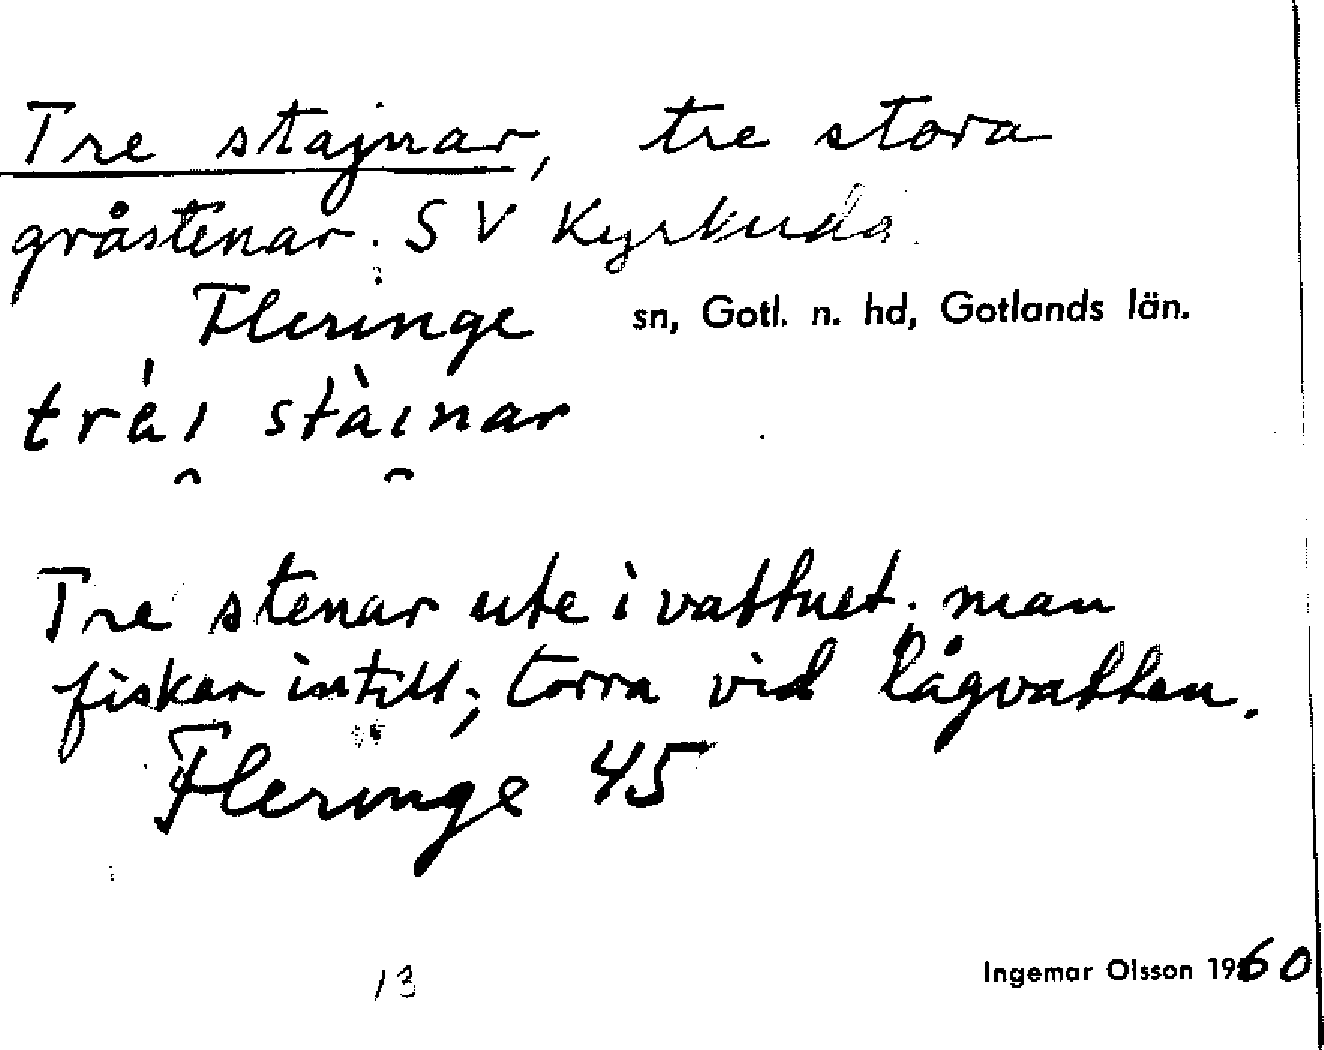 Tre stajnar, tre stora
gråstenar. SV Kyrkudd.
Fleringe sn, Gotl. n. hd, Gotlands län.
trài̯ stài̯nar
Tre stenar ute i vattnet. man
fiskar intill; torra vid lågvatten.
Fleringe 45
13
Ingemar Olsson 1960